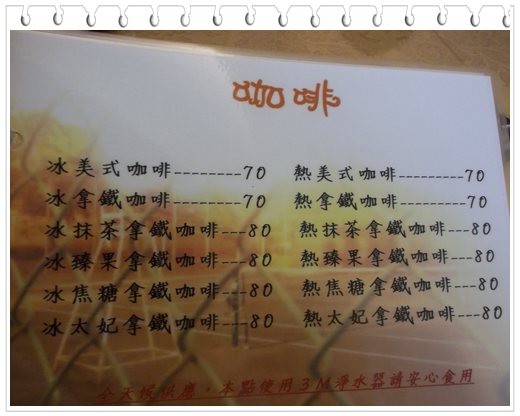 咖啡
冰美式咖啡---------70
冰拿鐵咖啡---------70
冰抹茶拿鐵咖啡---80
冰臻果拿鐵咖啡---80
冰焦糖拿鐵咖啡---80
冰太妃拿鐵咖啡---80
熱美式咖啡---------70
熱拿鐵咖啡---------70
熱抹茶拿鐵咖啡---80
熱臻果拿鐵咖啡---80
熱焦糖拿鐵咖啡---80
熱太妃拿鐵咖啡---80
全天候供應，本點使用3M淨水器請安心食用